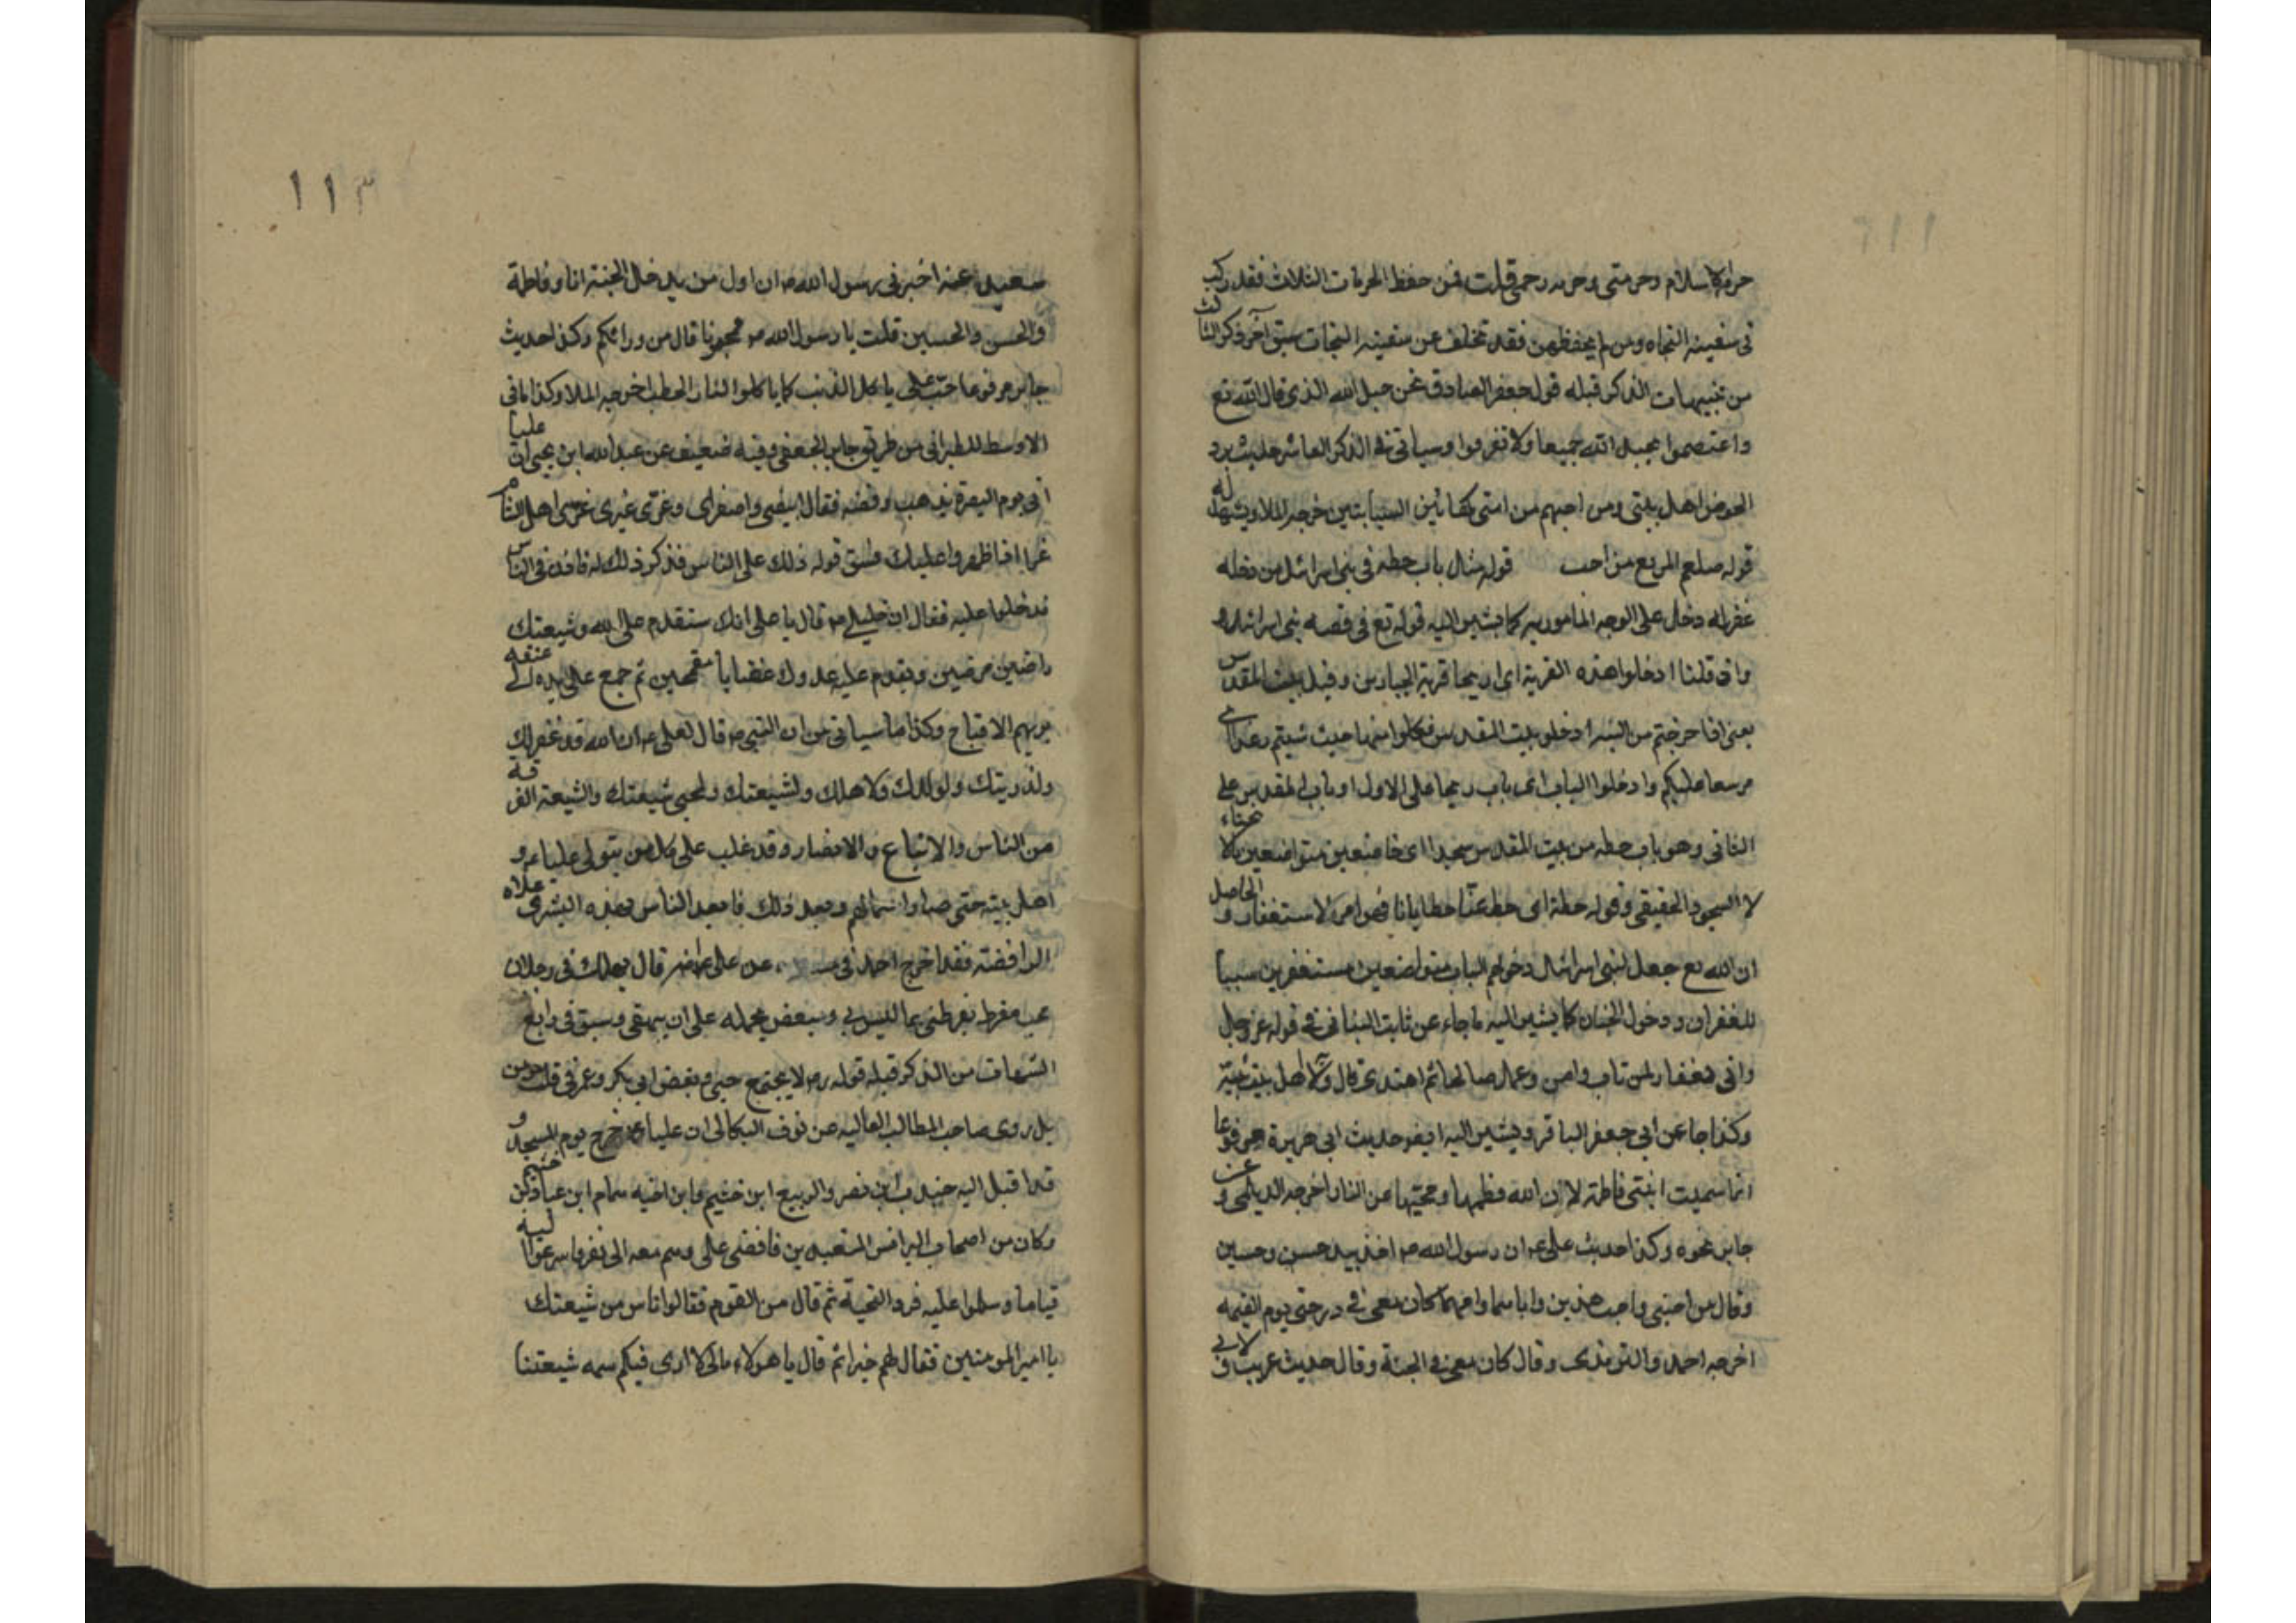 حرمة الاسلام وحرمتى وحرمة رحمى قلت فمن حفظ الحرمات الثلاث فقد ركب
فى سفينه النجاه ومن لم يحفظهن فقد تخلف عن سفينه النجات سبق آخر ذكر الثالث
من تنبيهات الذكر قبله قول جعفر الصادق نحن حبل الله الذى قال الله تع
واعتصموا بحبل الله جميعا ولا تفرقوا وسياتى فى الذكر العاشر حديث يرد
الحوض اهل بيتى ومن احبهم من امتى كهاتين السبابتين اخرجه الملا ويشهد له
قوله صلعم المرء مع من احب قوله مثال باب حطه فى بنى اسرائل من دخله
غفر له دخل على الوجه المامور به كما يشير اليه قوله تع فى قصه بنى اسرائل
واذ قلنا ادخلوا هذه القرية اى اريحا قرية الجبارين وقيل بيت المقدس
يعنى اذا خرجتم من التيه ادخلوا بيت المقدس فكلوا منها حيث شيتم رغدا اى
موسعا عليكم وادخلوا الباب اى باب ريحا على الاول او باب المقدس على
الثانى وهو باب حطه من بيت المقدس سجدا اى خاضعين متواضعين
لا السجود الحقيقى وقوله حطة اى حط عنا خطايانا فهو امر بالاستغفار والحاصل
ان الله تع جعل لبنى اسرائل دخولهم الباب متواضعين مستغفرين سببا
للغفران ودخول الجنان كما يشير اليه ما جاء عن ثابت البنانى فى قوله عز وجل
وانى لغفار لمن تاب وامن وعمل صالحا ثم اهتدى قال ولاء اهل بيت نبيه
وكذا جا عن ابى جعفر الباقر ويشير اليه ايضو حديث ابى هريرة مرفوعا
انما سميت ابنتى فاطمة لان الله فطمها ومحبيها عن النار اخرجه الديلمى وعن
جابر نحوه وكذا حديث على عه ان رسول الله صه اخذ بيد حسن وحسين
وقال من احبنى واحب هذين واباهما وامهما كان معى فى درجتى يوم القيمه
اخرجه احمد والترمذى وقال كان معى فى الجنة وقال حديث غريب ولابى
١١٣
سعيد عنه اخبرنى رسول الله صه ان اول من يدخل الجنة انا وفاطمة
والحسن والحسين قلت يا رسول الله صه فمحبونا قال من ورائكم وكذا حديث
جابر مرفوعا حب على ياكل الذنب كما ياكلوا النار الحطب اخرجه الملا وكذا مافى
الاوسط للطبرانى من طريق جابر الجعفى وفيه ضعيف عن عبد الله ابن يحيى ان عليا
اتى يوم البصرة بذهب وفضه فقال ابيضى واصفرى وغرى غيرى غرى اهل الشام
غدا اذا ظهروا عليك فشق قوله ذلك على الناس فذكر ذلك له فاذن فى الناس
فدخلوا عليه فقال ان خليلى صه قال يا على انك ستقدم على الله وشيعتك
راضين مرضين ويقدم عليه عدوك غضابا مقمحين ثم جمع على يده الى عنقه
يريهم الاقماح وكذا ما سياتى من ان النبى صه قال لعلى عه ان الله قد غفر لك
ولذريتك ولولدك ولاهلك ولشيعتك ولمحبى شيعتك والشيعة الفرقة
من الناس والاتباع والانصار وقد غلب على كل من يتولى عليا عه و
اهل بيته حتى صار اسما لهم وبعد ذلك
الرافضة فقد اخرج احمد فى عن على قال يهلك فى رجلان
محب مفرط يفرطنى بما ليس بى ومبغض يحمله على ان يبهتنى وسبق فى رابع
التنبيهات من الذكر قبله قوله لا يجتمع حبى وبغض ابى بكر وعمر فى قلب مومن
بل روى صاحب المطالب العاليه عن نوف البكالى ان عليا عه خرج يوم للمسجد و
قد اقبل اليه جندب ابن نصر والربيع ابن خثيم وابن اخيه همام ابن عباد ابن خثيم
وكان من اصحاب البرانس المتعبدين فافضى على وهم معه الى نفر فاسرعوا اليه
قياما وسلموا عليه فرد التحية ثم قال من القوم فقالوا اناس من شيعتك
يا امير المومنين فقال لهم خيرا ثم قال يا هولاء مالى لا ارى فيكم سمه شيعتنا